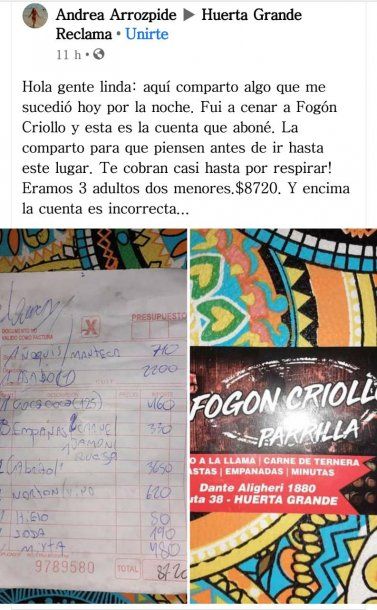 Andrea Arrozpide ▶ Huerta Grande
Reclama • Unirte
11 h •
Hola gente linda: aquí comparto algo que me
sucedió hoy por la noche. Fui a cenar a Fogón
Criollo y esta es la cuenta que aboné. La
comparto para que piensen antes de ir hasta
este lugar. Te cobran casi hasta por respirar!
Eramos 3 adultos dos menores.$8720. Y encima
la cuenta es incorrecta...
X
PRESUPUESTO
DOCUMENTO NO
VALIDO COMO FACTURA
1 Ñoquis/manteca 710
1 ASADO (1) 2200
COCA COCA (1,25) 460
EMPANAS CARNE 330
JAMON
QUESO
CABRITO 3650
NORTON VINO 620
1 HIELO 80
SODA 190
MIXTA 480
9789580
TOTAL 8720
FOGON CRIOLLO
PARRILLA
O A LA LLAMA | CARNE DE TERNERA
ASTAS | EMPANADAS | MINUTAS
Dante Aligheri 1880
uta 38 - HUERTA GRANDE